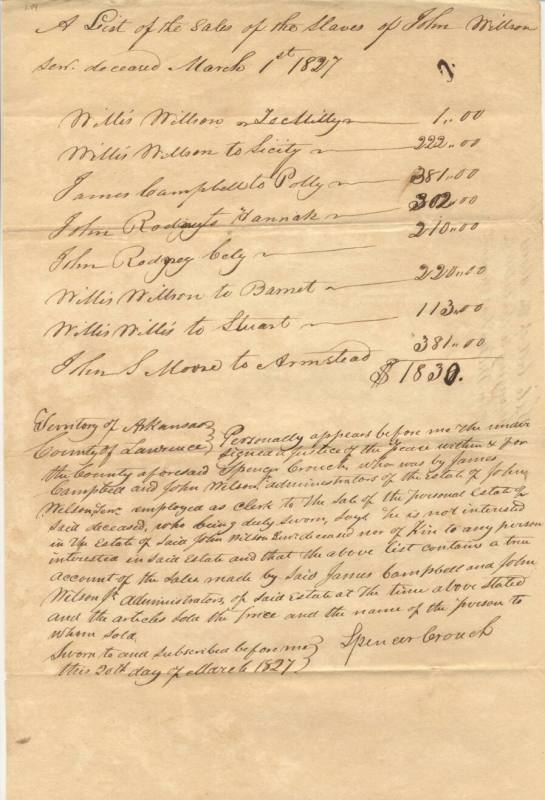 A List of the Sales of the Slaves of John Willson
senr. deceared March 1st 1827
Willis Willson To Milly 1..00
Willis Willson to Sicity 222..00
James Campbell to Polly 381..00
John Rodgney to Hannah 302..00
John Rodgney Cely 210..00
Willis Willson to Barnet 220..00
Willis Willis to Stuart 113..00
John S Moore to Armstead 381..00
$ 1830.
Territory of Arkansas
County of Lawrence } Personally appears before me the under
signed a justice of the peace within & for
the County aforesaid Spencer Crouch, who was by James
Campbell and John Wilson Jr. administrators of the Estate of John
Wilson Senr. employed as Clerk to the Sale of the personal Estate of
Said deceased, who being duly sworn, Says he is not interested
in the Estate of Said John Wilson Senr deceased nor of Kin to any person
interested in said Estate and that the above list contains a true
account of the Sales made by Said James Campbell and John
Wilson Jr. Administrators, of Said Estate at the time above Stated
and the articles Sold the price and the name of the person to
whom Sold.
Sworn to and subscribed before me Spencer Crouch
this 20th day of March 1827.